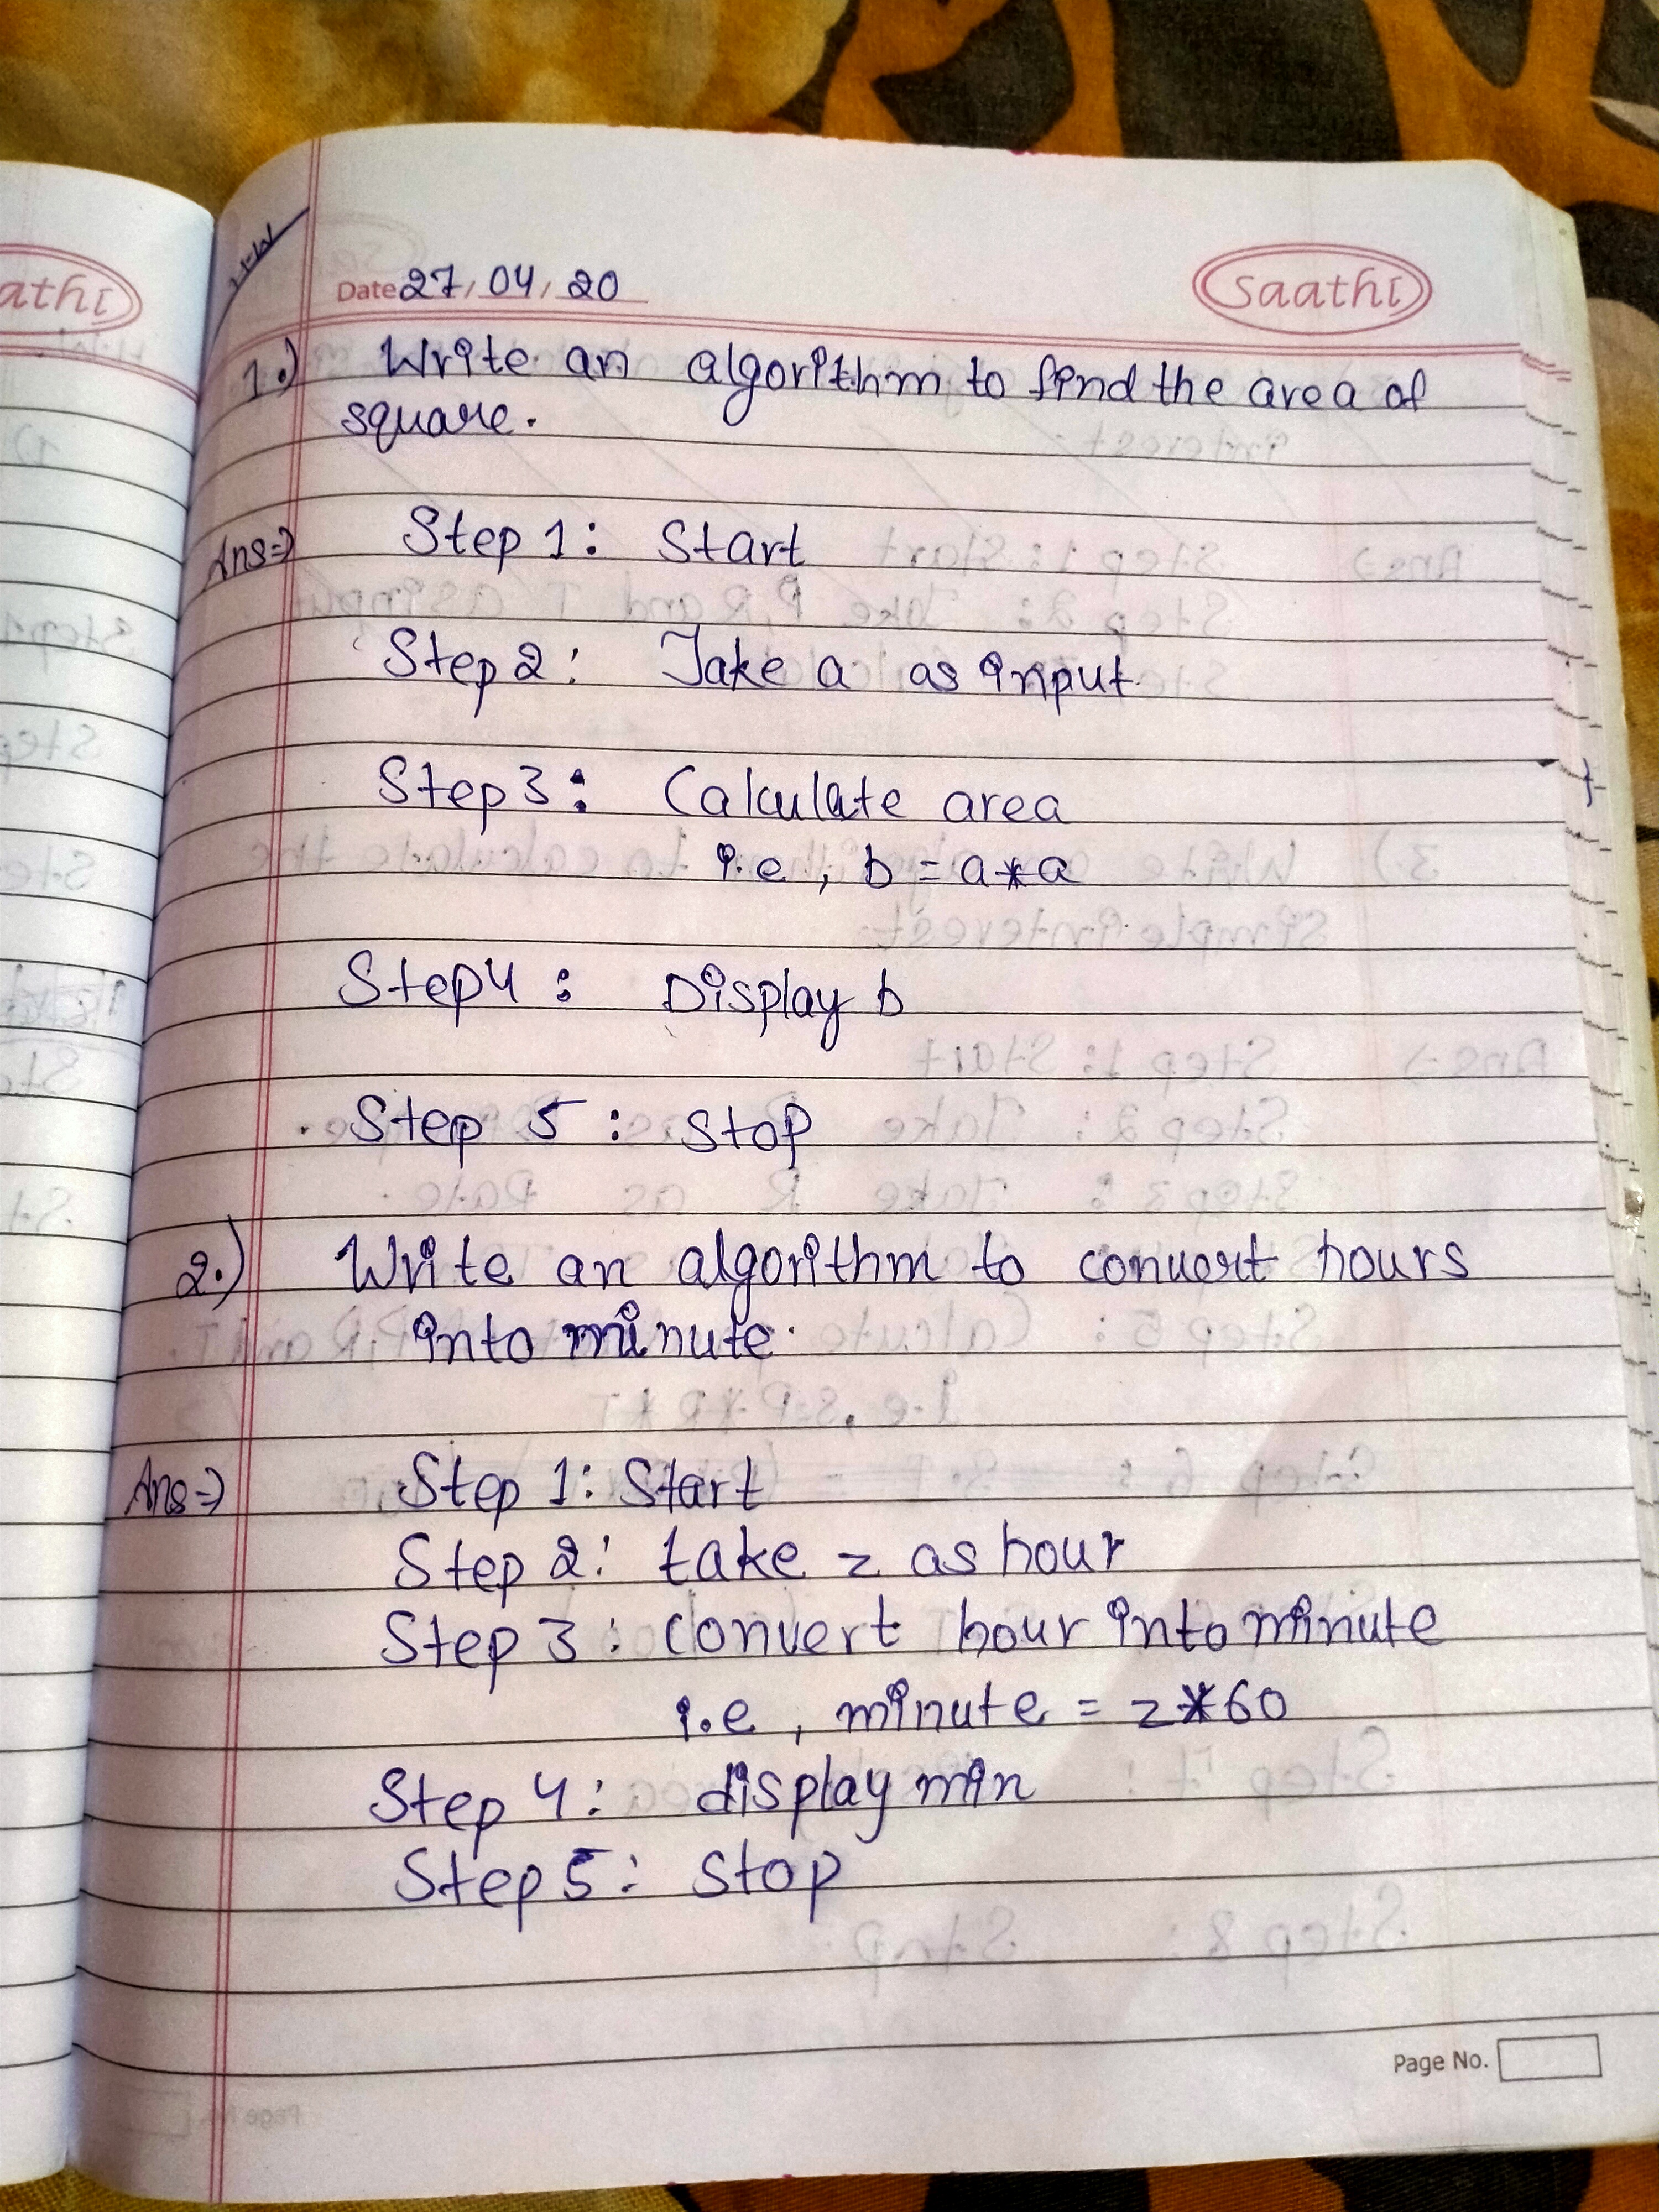 H.W
Date 27/04/20
saathi
1.) Write an algorithm to find the area of
square.
Ans⇒ Step 1: Start
Step 2: Take a as input.
Step 3: Calculate area
i.e, b = a*a
Step 4: Display b
Step 5: Stop
2.) Write an algorithm to convert hours
into minute.
Ans⇒ Step 1: Start
Step 2: take z as hour
Step 3: Convert hour into minute
i.e, minute = z*60
Step 4: display min
Step 5: Stop
Page No.